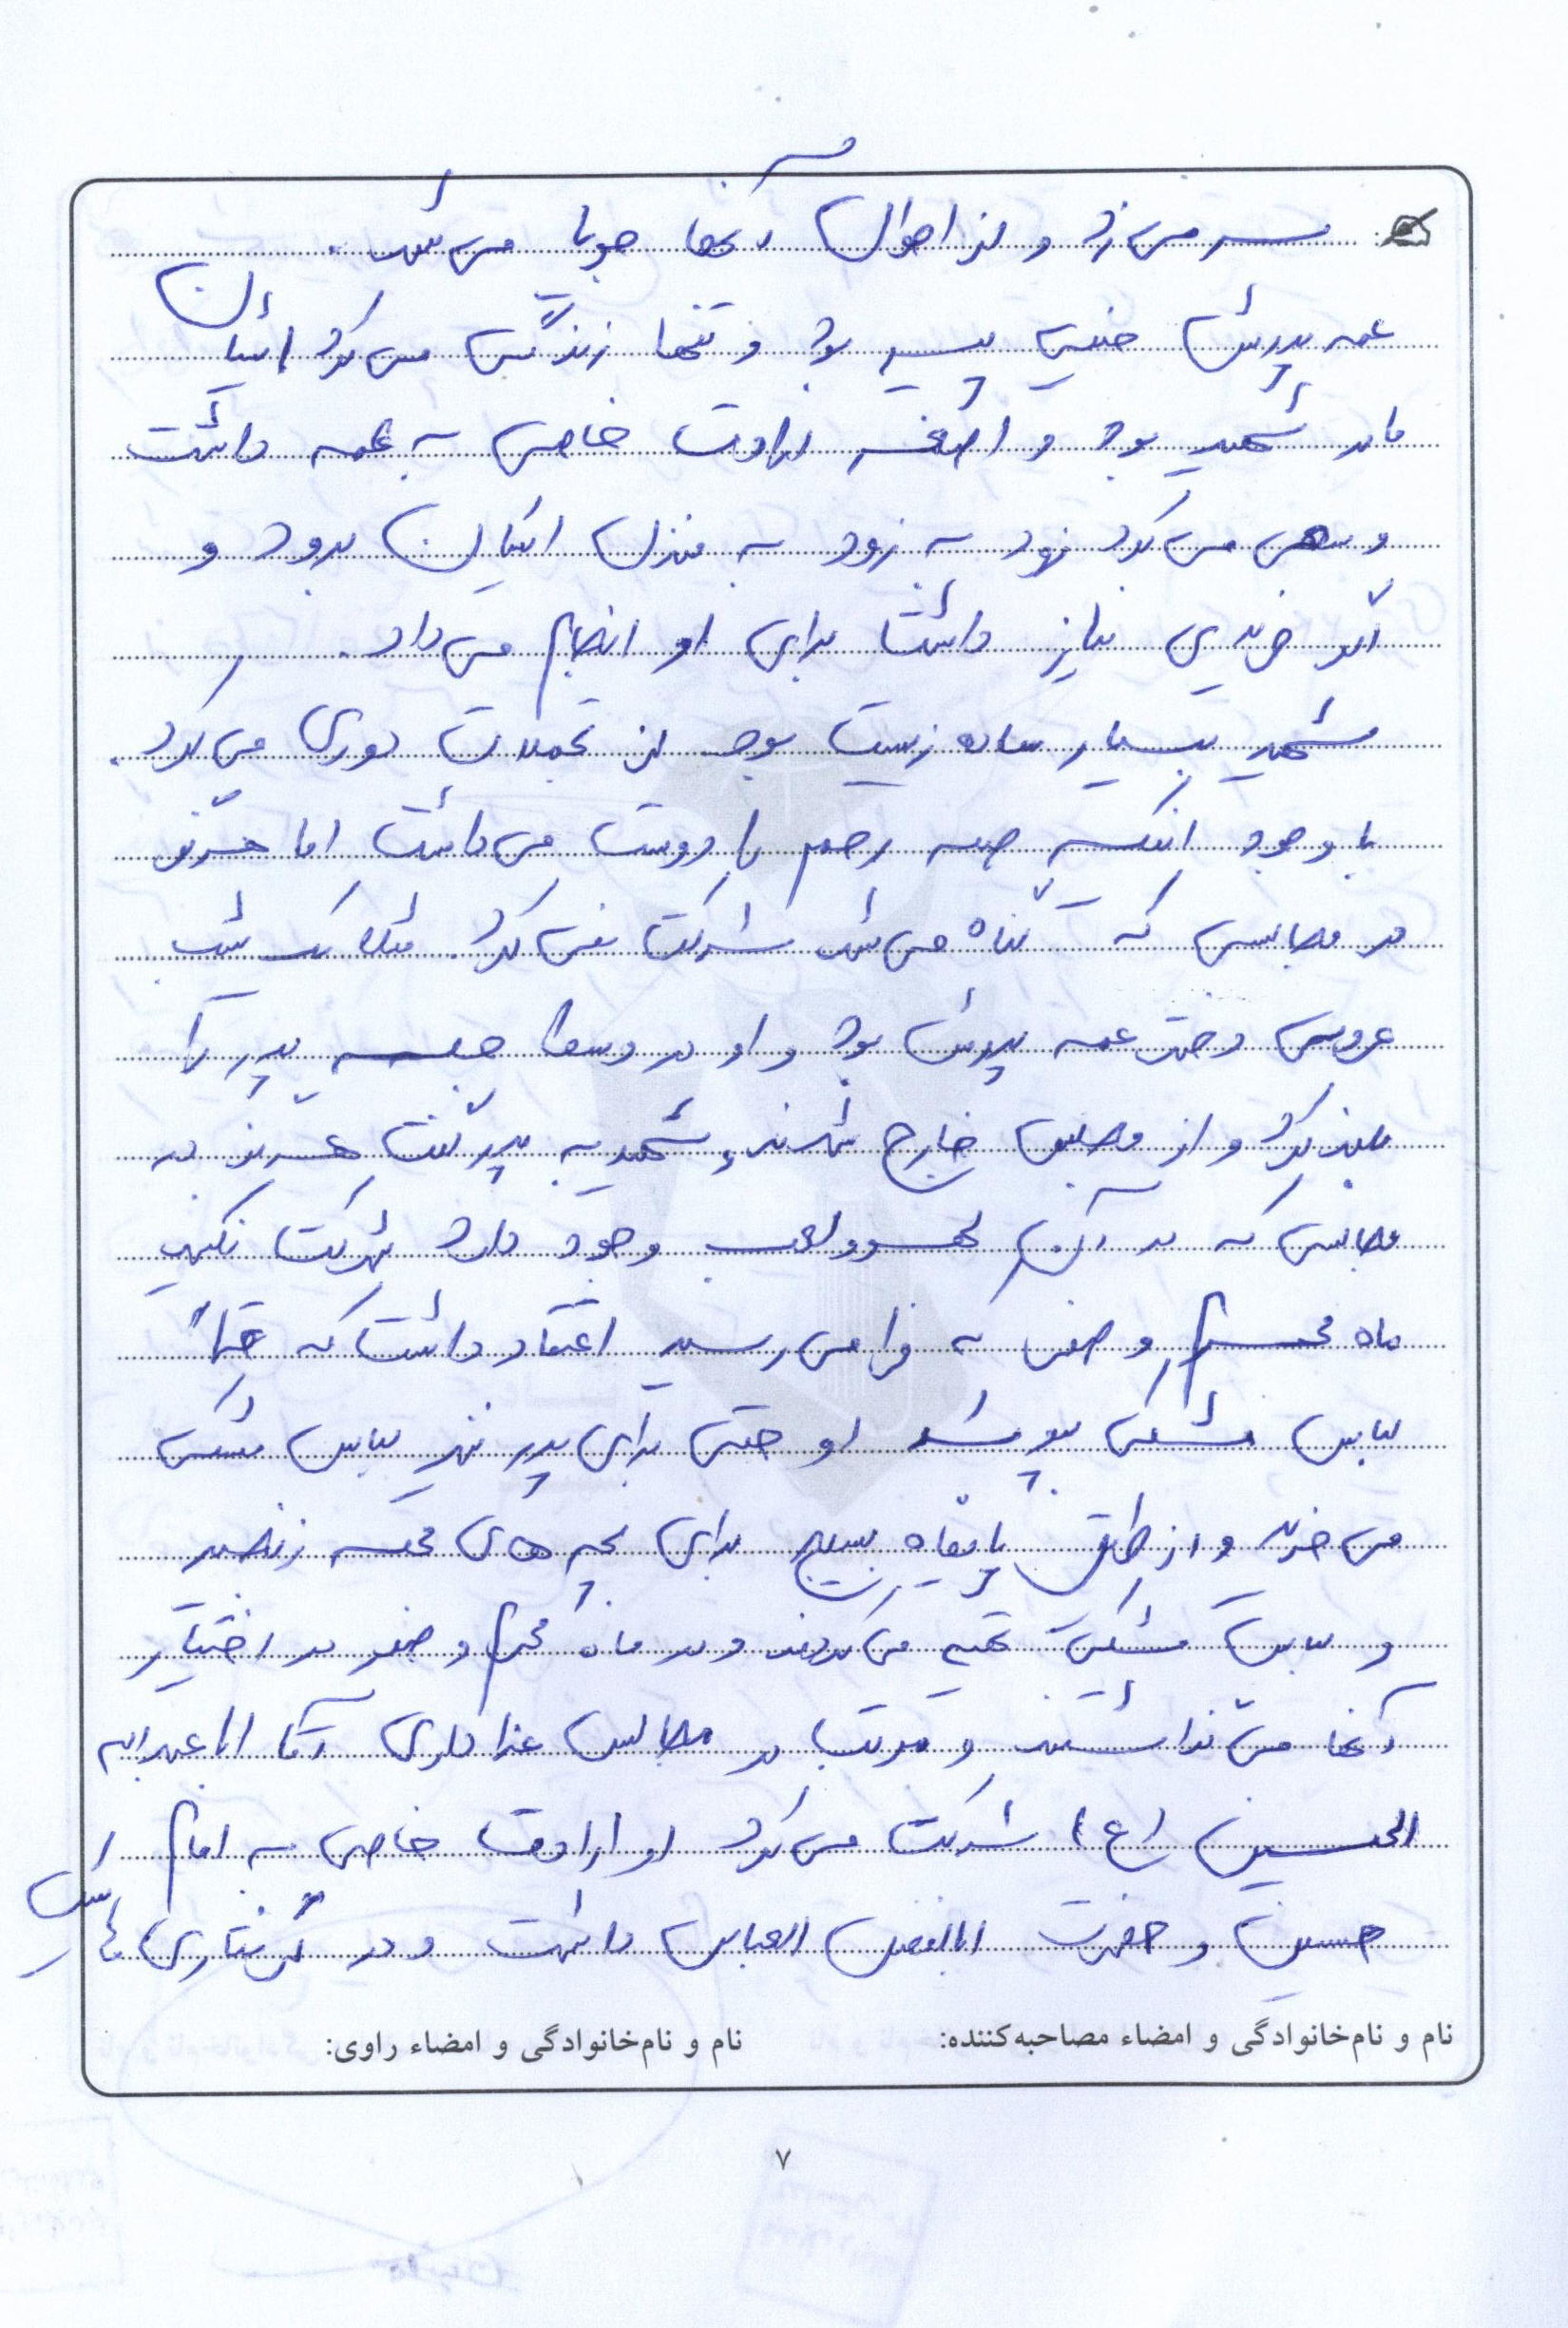 سر می‌زد و از احوال آنها جویا می‌شد.
عمه پدرش خیلی پیر بود و تنها زندگی می‌کرد ایشان
مادر شهید بود و اصغر ارادت خاصی به عمه داشت
و سعی می‌کرد زود به زود به منزل ایشان برود و
اگر خریدی نیاز داشت برای او انجام می‌داد.
شهید بسیار ساده زیست بود از تجملات دوری می‌کرد.
با وجود اینکه صله رحم را دوست می‌داشت اما هرگز
در مجالسی که گناه می‌شد شرکت نمی‌کرد. مثلا یک شب
عروسی دختر عمه پدرش بود و او در وسط جلسه پدر را
بلند کرد و از مجلس خارج شدند، شهید به پدر گفت هرگز در
مجالسی که در آن لهو و لعب وجود دارد شرکت نکنید
ماه محرم و صفر که فرا می‌رسید اعتقاد داشت که حتماً
لباس مشکی بپوشد او حتی برای پدر نیز لباس مشکی
می‌خرید و از طریق پایگاه بسیج برای بچه‌های محله زنجیر
و لباس مشکی تهیه می‌کردند و در ماه محرم و صفر در اختیار
آنها می‌گذاشتند و مرتب در مجالس عزاداری آقا اباعبداله
الحسین (ع) شرکت می‌کرد او ارادت خاصی به امام
حسین و حضرت اباالفضل العباس داشت و در گرفتاری‌هایش
نام و نام‌خانوادگی و امضاء مصاحبه‌کننده: نام و نام‌خانوادگی و امضاء راوی:
۷